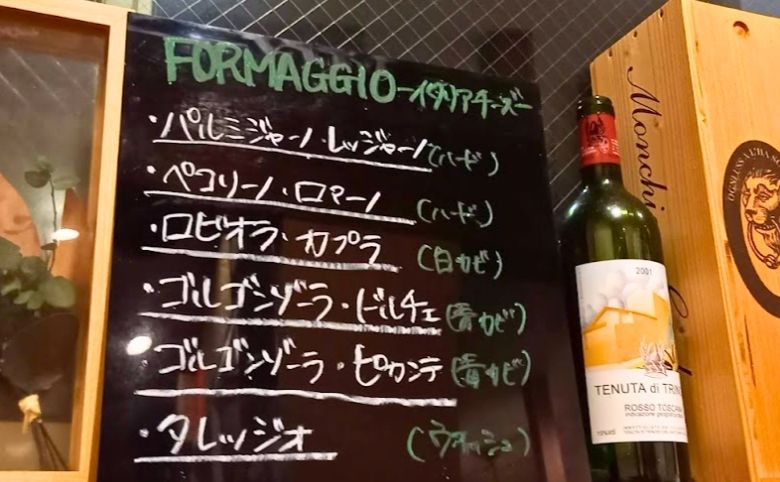 FORMAGGIO -イタリアチーズ-
・パルミジャーノ・レッジャーノ (ハード)
・ペコリーノ・ロマーノ (ハード)
・ロビオラ・カプラ (白カビ)
・ゴルゴンゾーラ・ドルチェ (青カビ)
・ゴルゴンゾーラ・ピカンテ (青カビ)
・タレッジオ (ウォッシュ)
Monchi
2001
TENUTA di TRIN
ROSSO TOSCANA